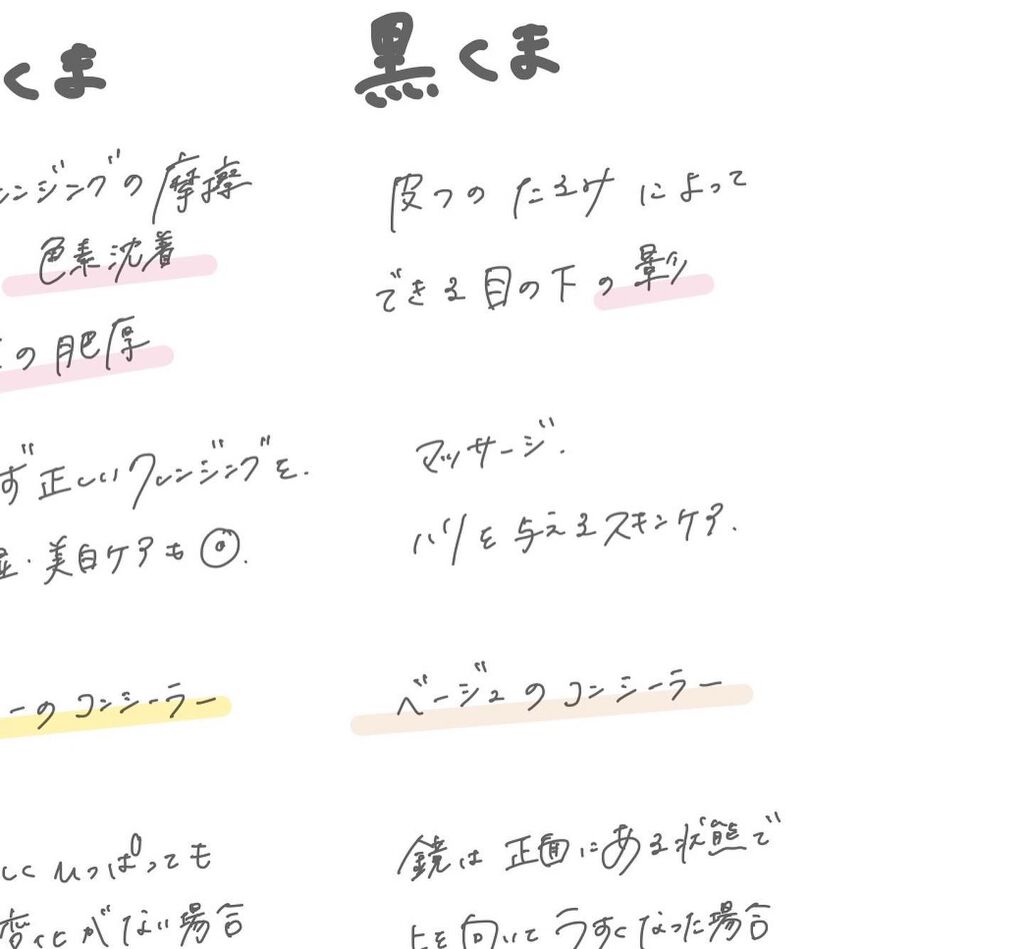 くま
ンジングの摩擦
色素沈着
の肥厚
ず正しいクレンジングを.
・美白ケアも◎.
ーのコンシーラー
ひっぱっても
変化がない場合
黒くま
皮フのたるみによって
できる目の下の影
マッサージ.
ハリを与えるスキンケア.
ベージュのコンシーラー
鏡は正面にある状態で
上を向いてうすくなった場合